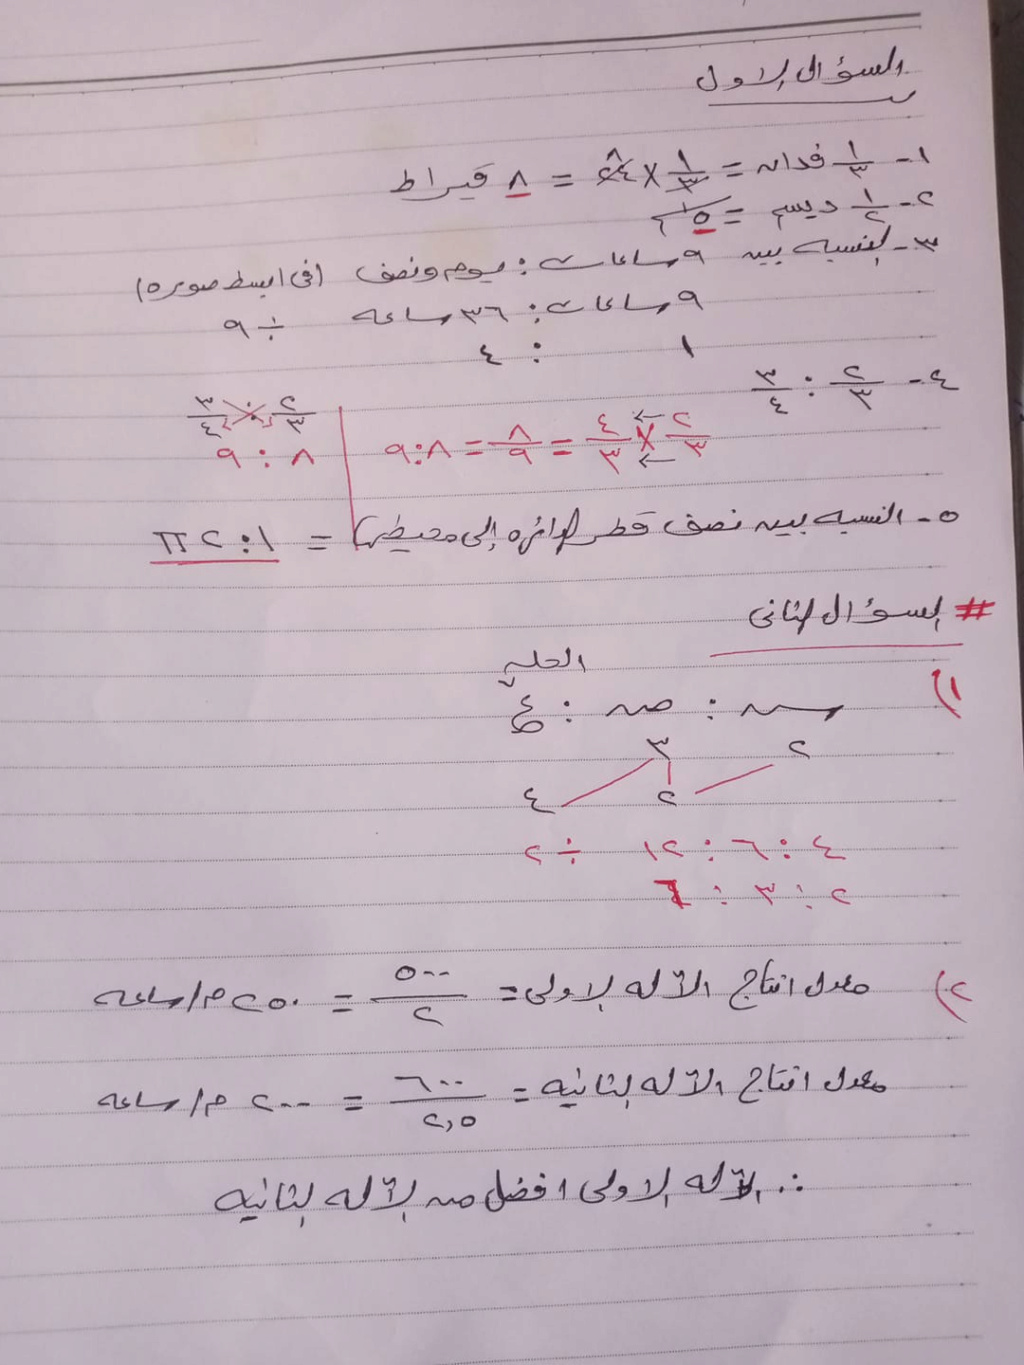 السؤال الاول
١- ١/٣ فدان = ١/٣ × ٢٤ ٨ = ٨ قيراط
٢- ١/٢ ديسم = ٥ سم
٣- النسبه بين ٩ ساعات : يوم ونصف (فى ابسط صوره)
٩ ساعات : ٣٦ ساعه ÷ ٩
١ : ٤
٤- ٢/٣ : ٣/٤
٢/٣ × ٤/٣ = ٨/٩ = ٨ : ٩
٢/٣ : ٣/٤
٨ : ٩
٥- النسبه بين نصف قطر الدائره إلى محيطها = ١ : ٢ π
# السؤال الثانى
الحل
١) س : ص : ع
٢ ٣
٢ ٤
٤ : ٦ : ١٢ ÷ ٢
٢ : ٣ : ٦
٢) معدل انتاج الآله الاولى = ٥٠٠/٢ = ٢٥٠ م/ساعه
معدل انتاج الآله الثانيه = ٦٠٠/٢,٥ = ٢٠٠ م/ساعه
∴ الآله الاولى افضل من الآله الثانيه